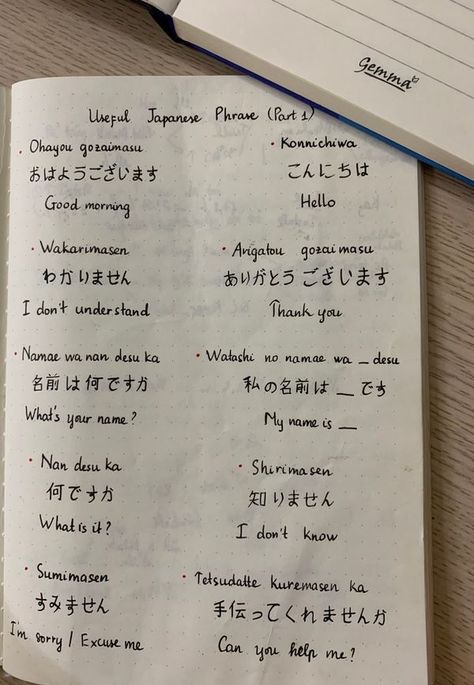 Gemma
Useful Japanese Phrase (Part 1)
• Ohayou gozaimasu
おはようございます
Good morning
• Konnichiwa
こんにちは
Hello
• Wakarimasen
わかりません
I don't understand
• Arigatou gozaimasu
ありがとうございます
Thank you
• Namae wa nan desu ka
名前は何ですか
What's your name?
• Watashi no namae wa _ desu
私の名前は _ です
My name is _
• Nan desu ka
何ですか
What is it?
• Shirimasen
知りません
I don't know
• Sumimasen
すみません
I'm sorry / Excuse me
• Tetsudatte kuremasen ka
手伝ってくれませんか
Can you help me?